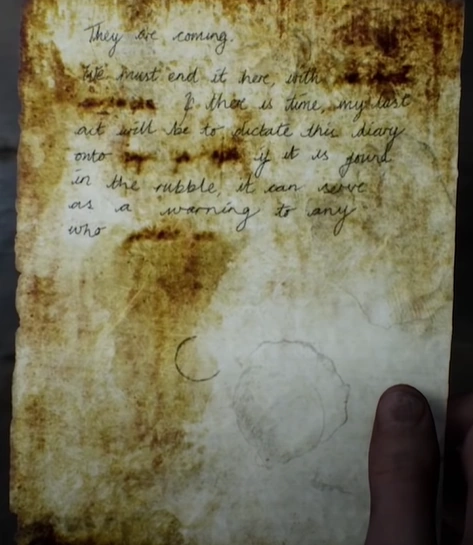 They are coming.
We must end it here, with
If there is time, my last
act will be to dictate this diary
onto if it is found
in the rubble, it can serve
as a warning to any
who